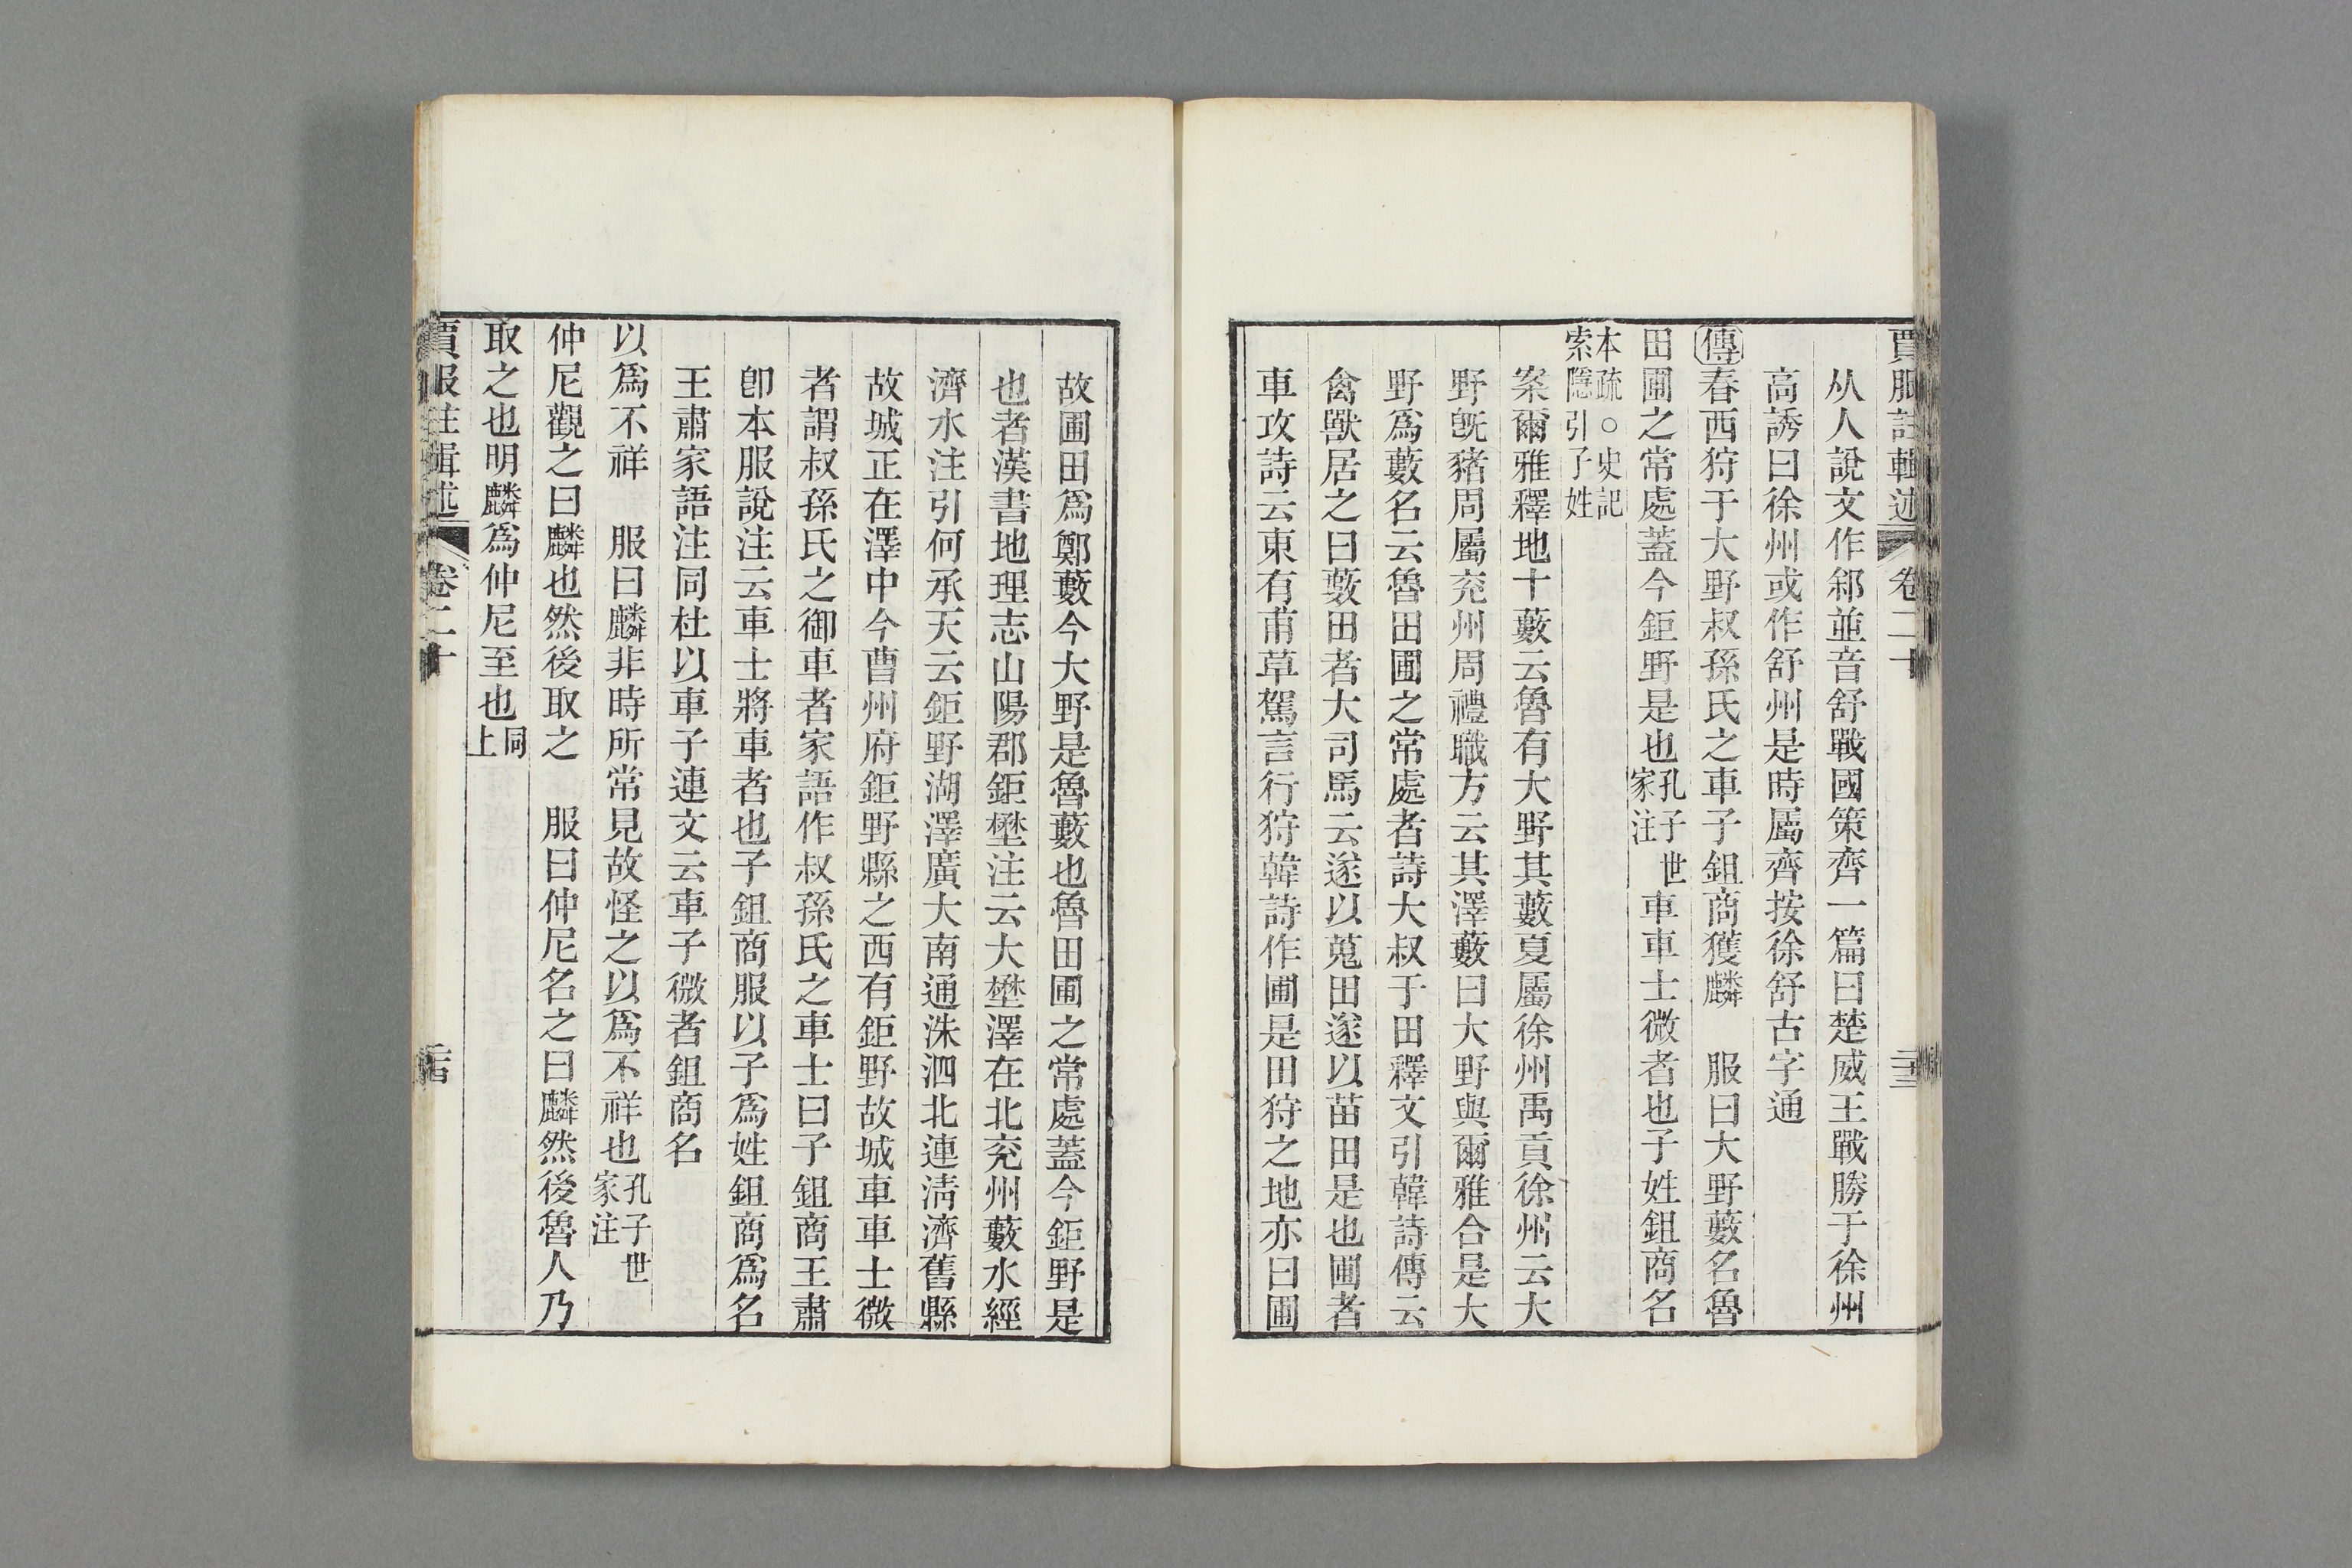 賈服註輯述 卷二十 二十三
从人說文作䣄並音舒戰國策齊一篇曰楚威王戰勝于徐州
高誘曰徐州或作舒州是時屬齊按徐舒古字通
傳春西狩于大野叔孫氏之車子鉏商獲麟 服曰大野藪名魯
田圃之常處蓋今鉅野是也孔子世家注車車士微者也子姓鉏商名
本疏○史記索隱引子姓
案爾雅釋地十藪云魯有大野其藪夏屬徐州禹貢徐州云大
野旣豬周屬兖州周禮職方云其澤藪曰大野與爾雅合是大
野爲藪名云魯田圃之常處者詩大叔于田釋文引韓詩傳云
禽獸居之曰藪田者大司馬云遂以蒐田遂以苗田是也圃者
車攻詩云東有莆草駕言行狩韓詩作圃是田狩之地亦曰圃
故圃田爲鄭藪今大野是魯藪也魯田圃之常處蓋今鉅野是
也者漢書地理志山陽郡鉅壄注云大壄澤在北兖州藪水經
濟水注引何承天云鉅野湖澤廣大南通洙泗北連淸濟舊縣
故城正在澤中今曹州府鉅野縣之西有鉅野故城車車士微
者謂叔孫氏之御車者家語作叔孫氏之車士曰子鉏商王肅
卽本服說注云車士將車者也子鉏商服以子爲姓鉏商爲名
王肅家語注同杜以車子連文云車子微者鉏商名
以爲不祥 服曰麟非時所常見故怪之以爲不祥也孔子世家注
仲尼觀之曰麟也然後取之 服曰仲尼名之曰麟然後魯人乃
取之也明麟爲仲尼至也同上
賈服註輯述 卷二十 二十四